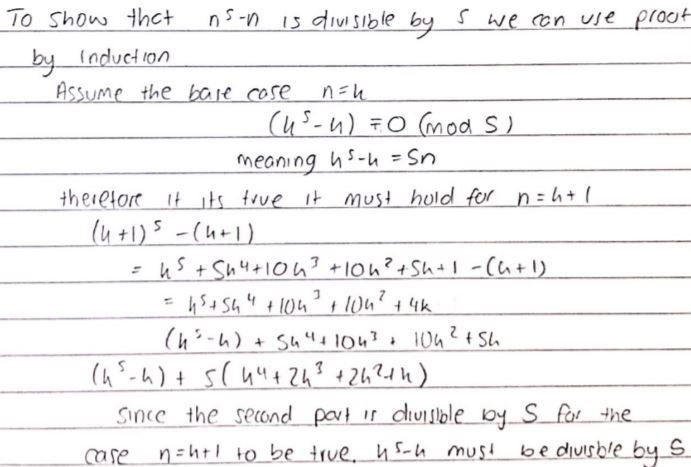 To show that n⁵-n is divisible by 5 we can use proof
by induction
Assume the base case n=k
(k⁵-k) ≡ 0 (mod 5)
meaning k⁵-k = 5n
therefore if its true it must hold for n=k+1
(k+1)⁵ -(k+1)
= k⁵ + 5k⁴+10k³ +10k²+5k+1 -(k+1)
= k⁵+5k⁴ + 10k³ + 10k² + 4k
(k⁵-k) + 5k⁴+10k³ + 10k²+5k
(k⁵-k) + 5(k⁴+2k³ +2k²+k)
Since the second part is divisible by 5 for the
case n=k+1 to be true, k⁵-k must be divisble by 5